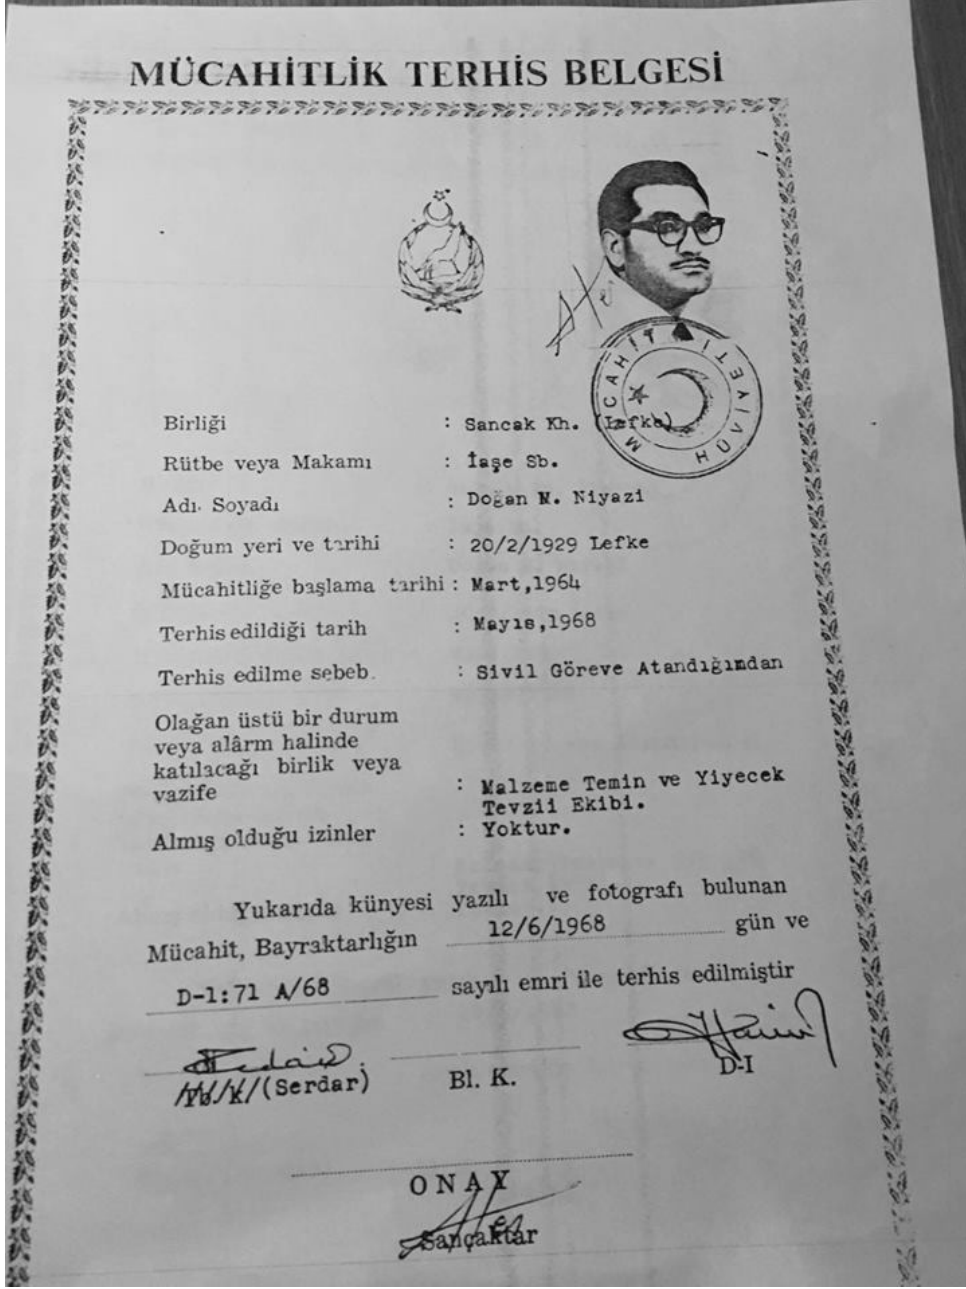 MÜCAHİTLİK TERHİS BELGESİ
MÜCAHİT HÜVİYETİ
Birliği : Sancak Kh. (Lefke)
Rütbe veya Makamı : İaşe Sb.
Adı Soyadı : Doğan M. Niyazi
Doğum yeri ve tarihi : 20/2/1929 Lefke
Mücahitliğe başlama tarihi : Mart,1964
Terhis edildiği tarih : Mayıs,1968
Terhis edilme sebeb. : Sivil Göreve Atandığından
Olağan üstü bir durum
veya alârm halinde
katılacağı birlik veya
vazife : Malzeme Temin ve Yiyecek
Tevzii Ekibi.
Almış olduğu izinler : Yoktur.
Yukarıda künyesi yazılı ve fotografı bulunan
Mücahit, Bayraktarlığın 12/6/1968 gün ve
D-1:71 A/68 sayılı emri ile terhis edilmiştir
(Serdar) Bl. K. D-I
ONAY
Sançaktar